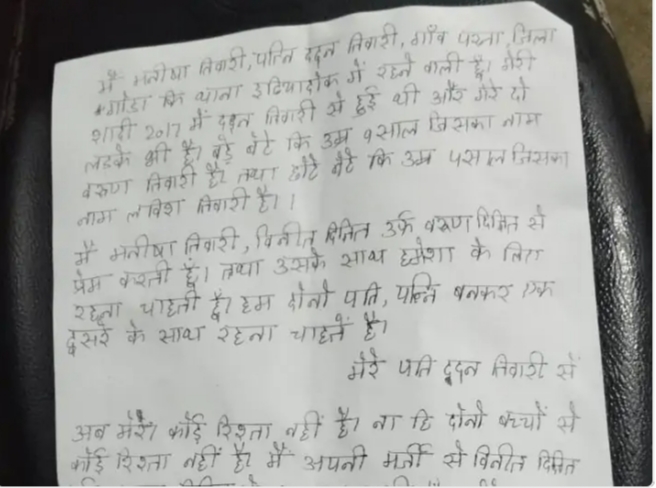 मैं मनीषा तिवारी, पत्नि ददन तिवारी, गाँव परना, जिला
गोंडा कि थाना इटियाथोक में रहने वाली हूँ। मेरी
शादी 2017 में ददन तिवारी से हुई थी और मेरे दो
लडके भी है। बड़े बेटे कि उम्र 9 साल जिसका नाम
वरुण तिवारी है। तथा छोटे बेटे कि उम्र जिसका
नाम लविश तिवारी है।।
मैं मनीषा तिवारी, विनीत दिक्षित उर्फ वरुण दिक्षित से
प्रेम करती हूँ। तथा उसके साथ हमेशा के लिए
रहना चाहती हूँ। हम दोनो पति, पत्नि बनकर एक
दुसरे के साथ रहना चाहते है।
मेरे पति ददन तिवारी से
अब मेरा कोई रिश्ता नहीं है। ना हि दोनो बच्चों से
कोई रिश्ता नहीं है। मैं अपनी मर्जी से विनीत दिक्षित